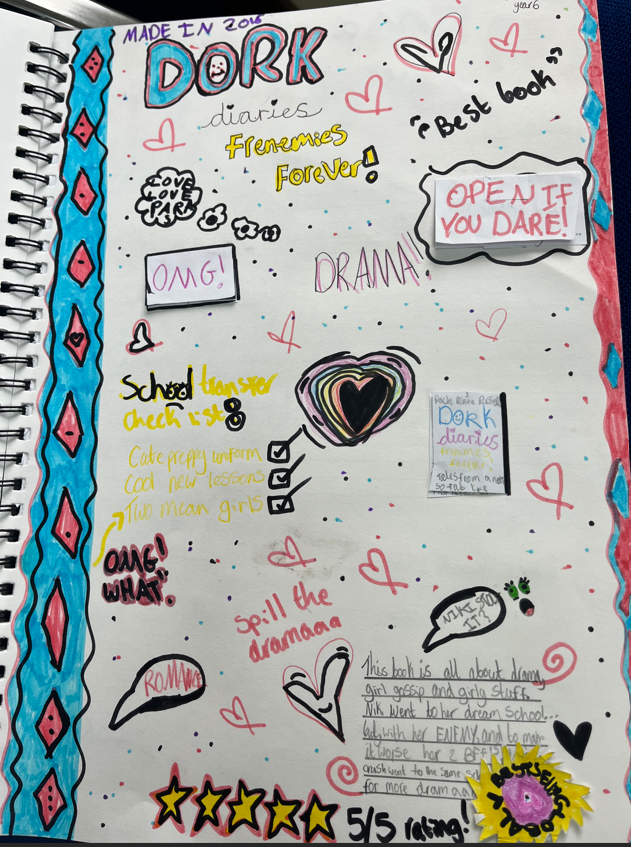 year 6
MADE IN 2016
DORK
diaries
Frenemies
Forever!
"Best book"
LOVE
LOVE
PARK
OPEN IF
YOU DARE!
OMG!
DRAMA!!
School transfer
check list
Cute preppy uniform
Cool new lessons
Two mean girls
DORK
diaries
Tales from a not
OMG!
WHAT
Spill the
dramaaa
NIKI
IT?
ROMANCE
This book is all about drama,
girl gossip and girly stuff.
Nik went to her dream School...
but with her ENEMY, and to make
it worse her 2 BFF!
crush went to the same
for more dramaaa
5/5 rating!